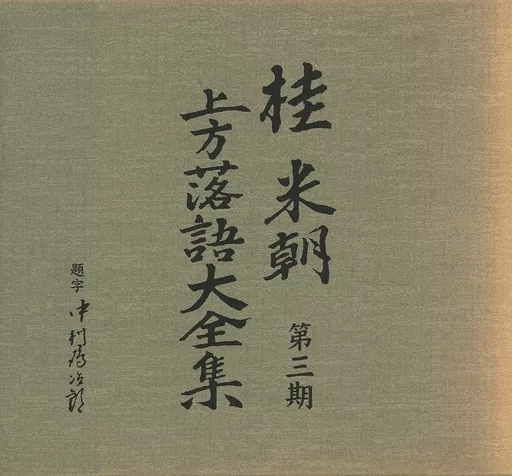 桂米朝
第三期
上方落語大全集
題字
中村鴈治郎